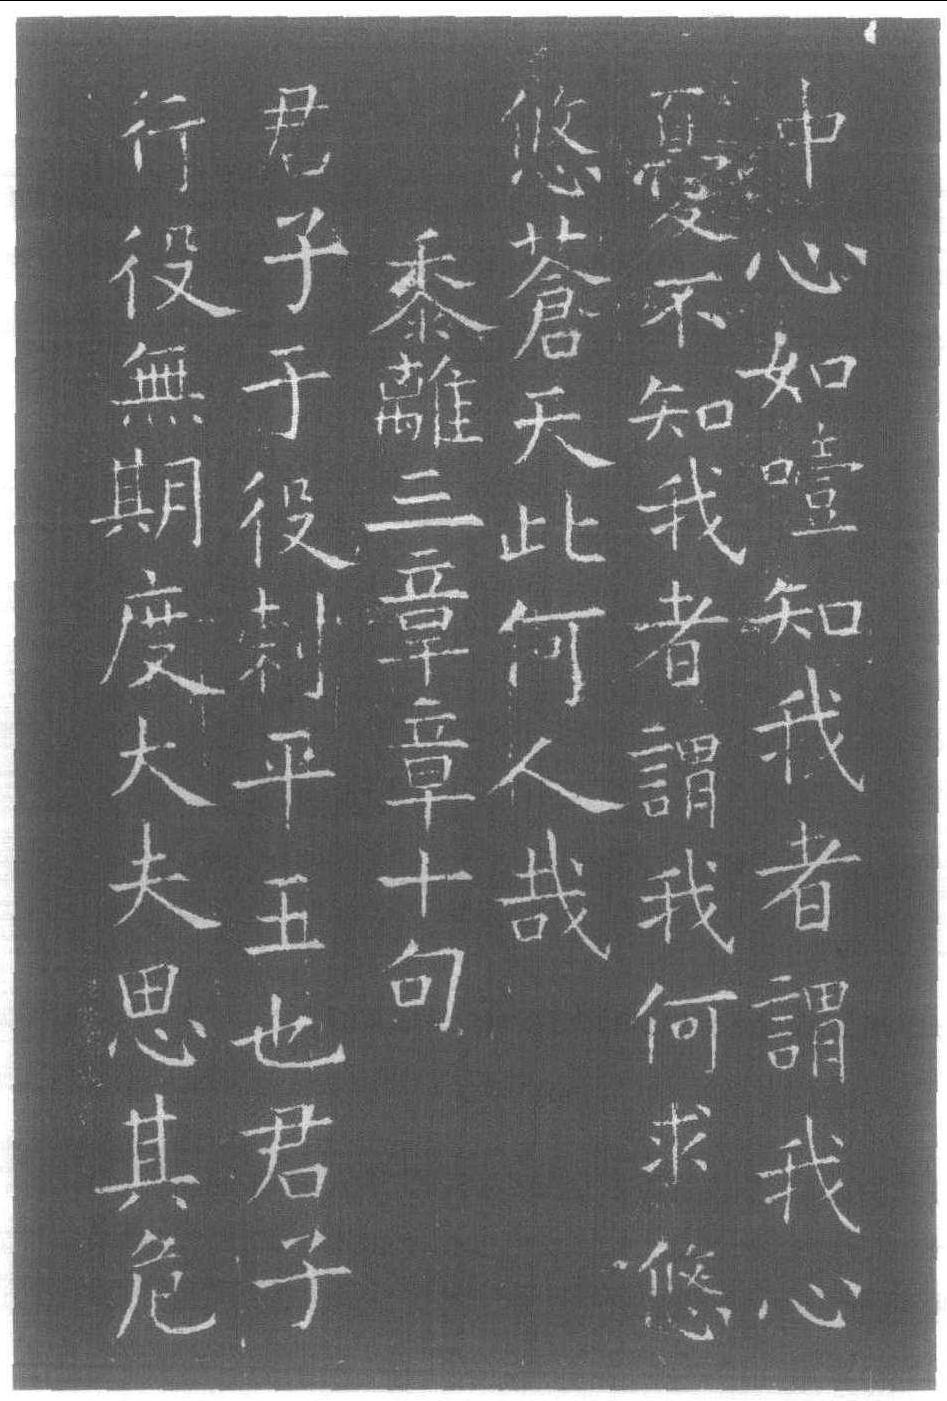 中心如噎知我者謂我心
憂不知我者謂我何求悠
悠蒼天此何人哉
黍離三章章十句
君子于役刺平王也君子
行役無期度大夫思其危